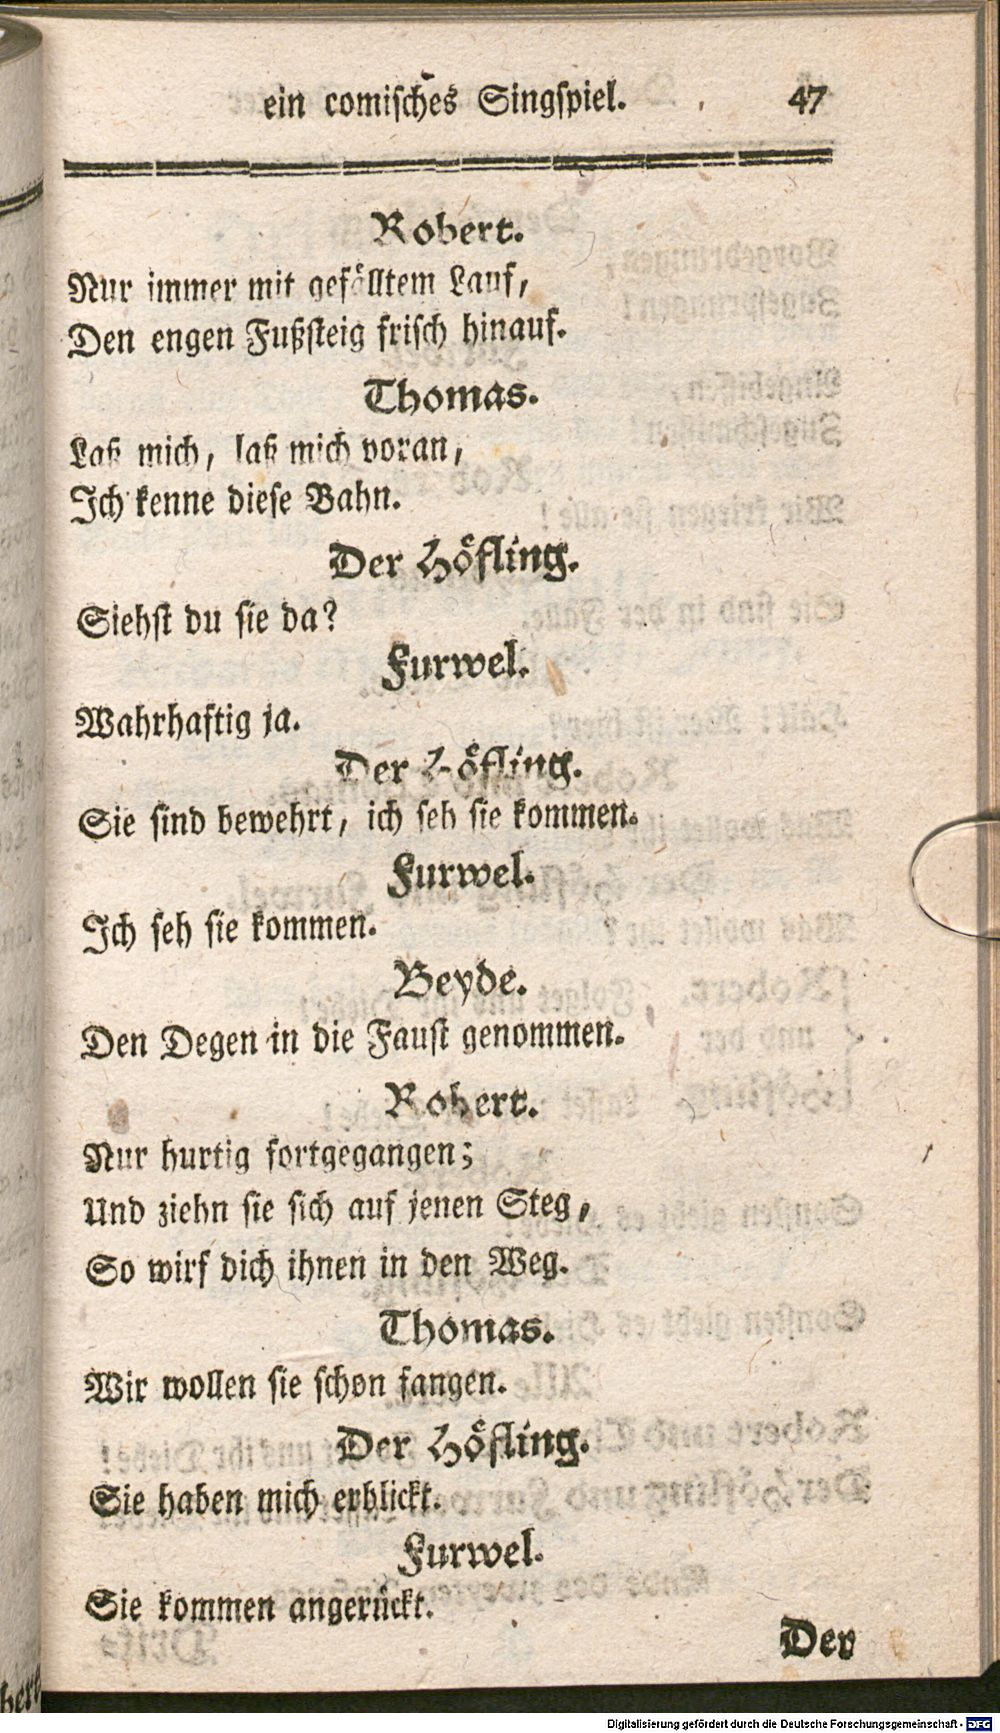 ein comisches Singspiel. 47
Robert.
Nur immer mit gefälltem Lauf,
Den engen Fußsteig frisch hinauf.
Thomas.
Laß mich, laß mich voran,
Ich kenne diese Bahn.
Der Höfling.
Siehst du sie da?
Furwel.
Wahrhaftig ja.
Der Höfling.
Sie sind bewehrt, ich seh sie kommen.
Furwel.
Ich seh sie kommen.
Beyde.
Den Degen in die Faust genommen.
Robert.
Nur hurtig fortgegangen;
Und ziehn sie sich auf jenen Steg,
So wirf dich ihnen in den Weg.
Thomas.
Wir wollen sie schon fangen.
Der Höfling.
Sie haben mich erblickt.
Furwel.
Sie kommen angerückt.
Der
Digitalisierung gefördert durch die Deutsche Forschungsgemeinschaft - DFG